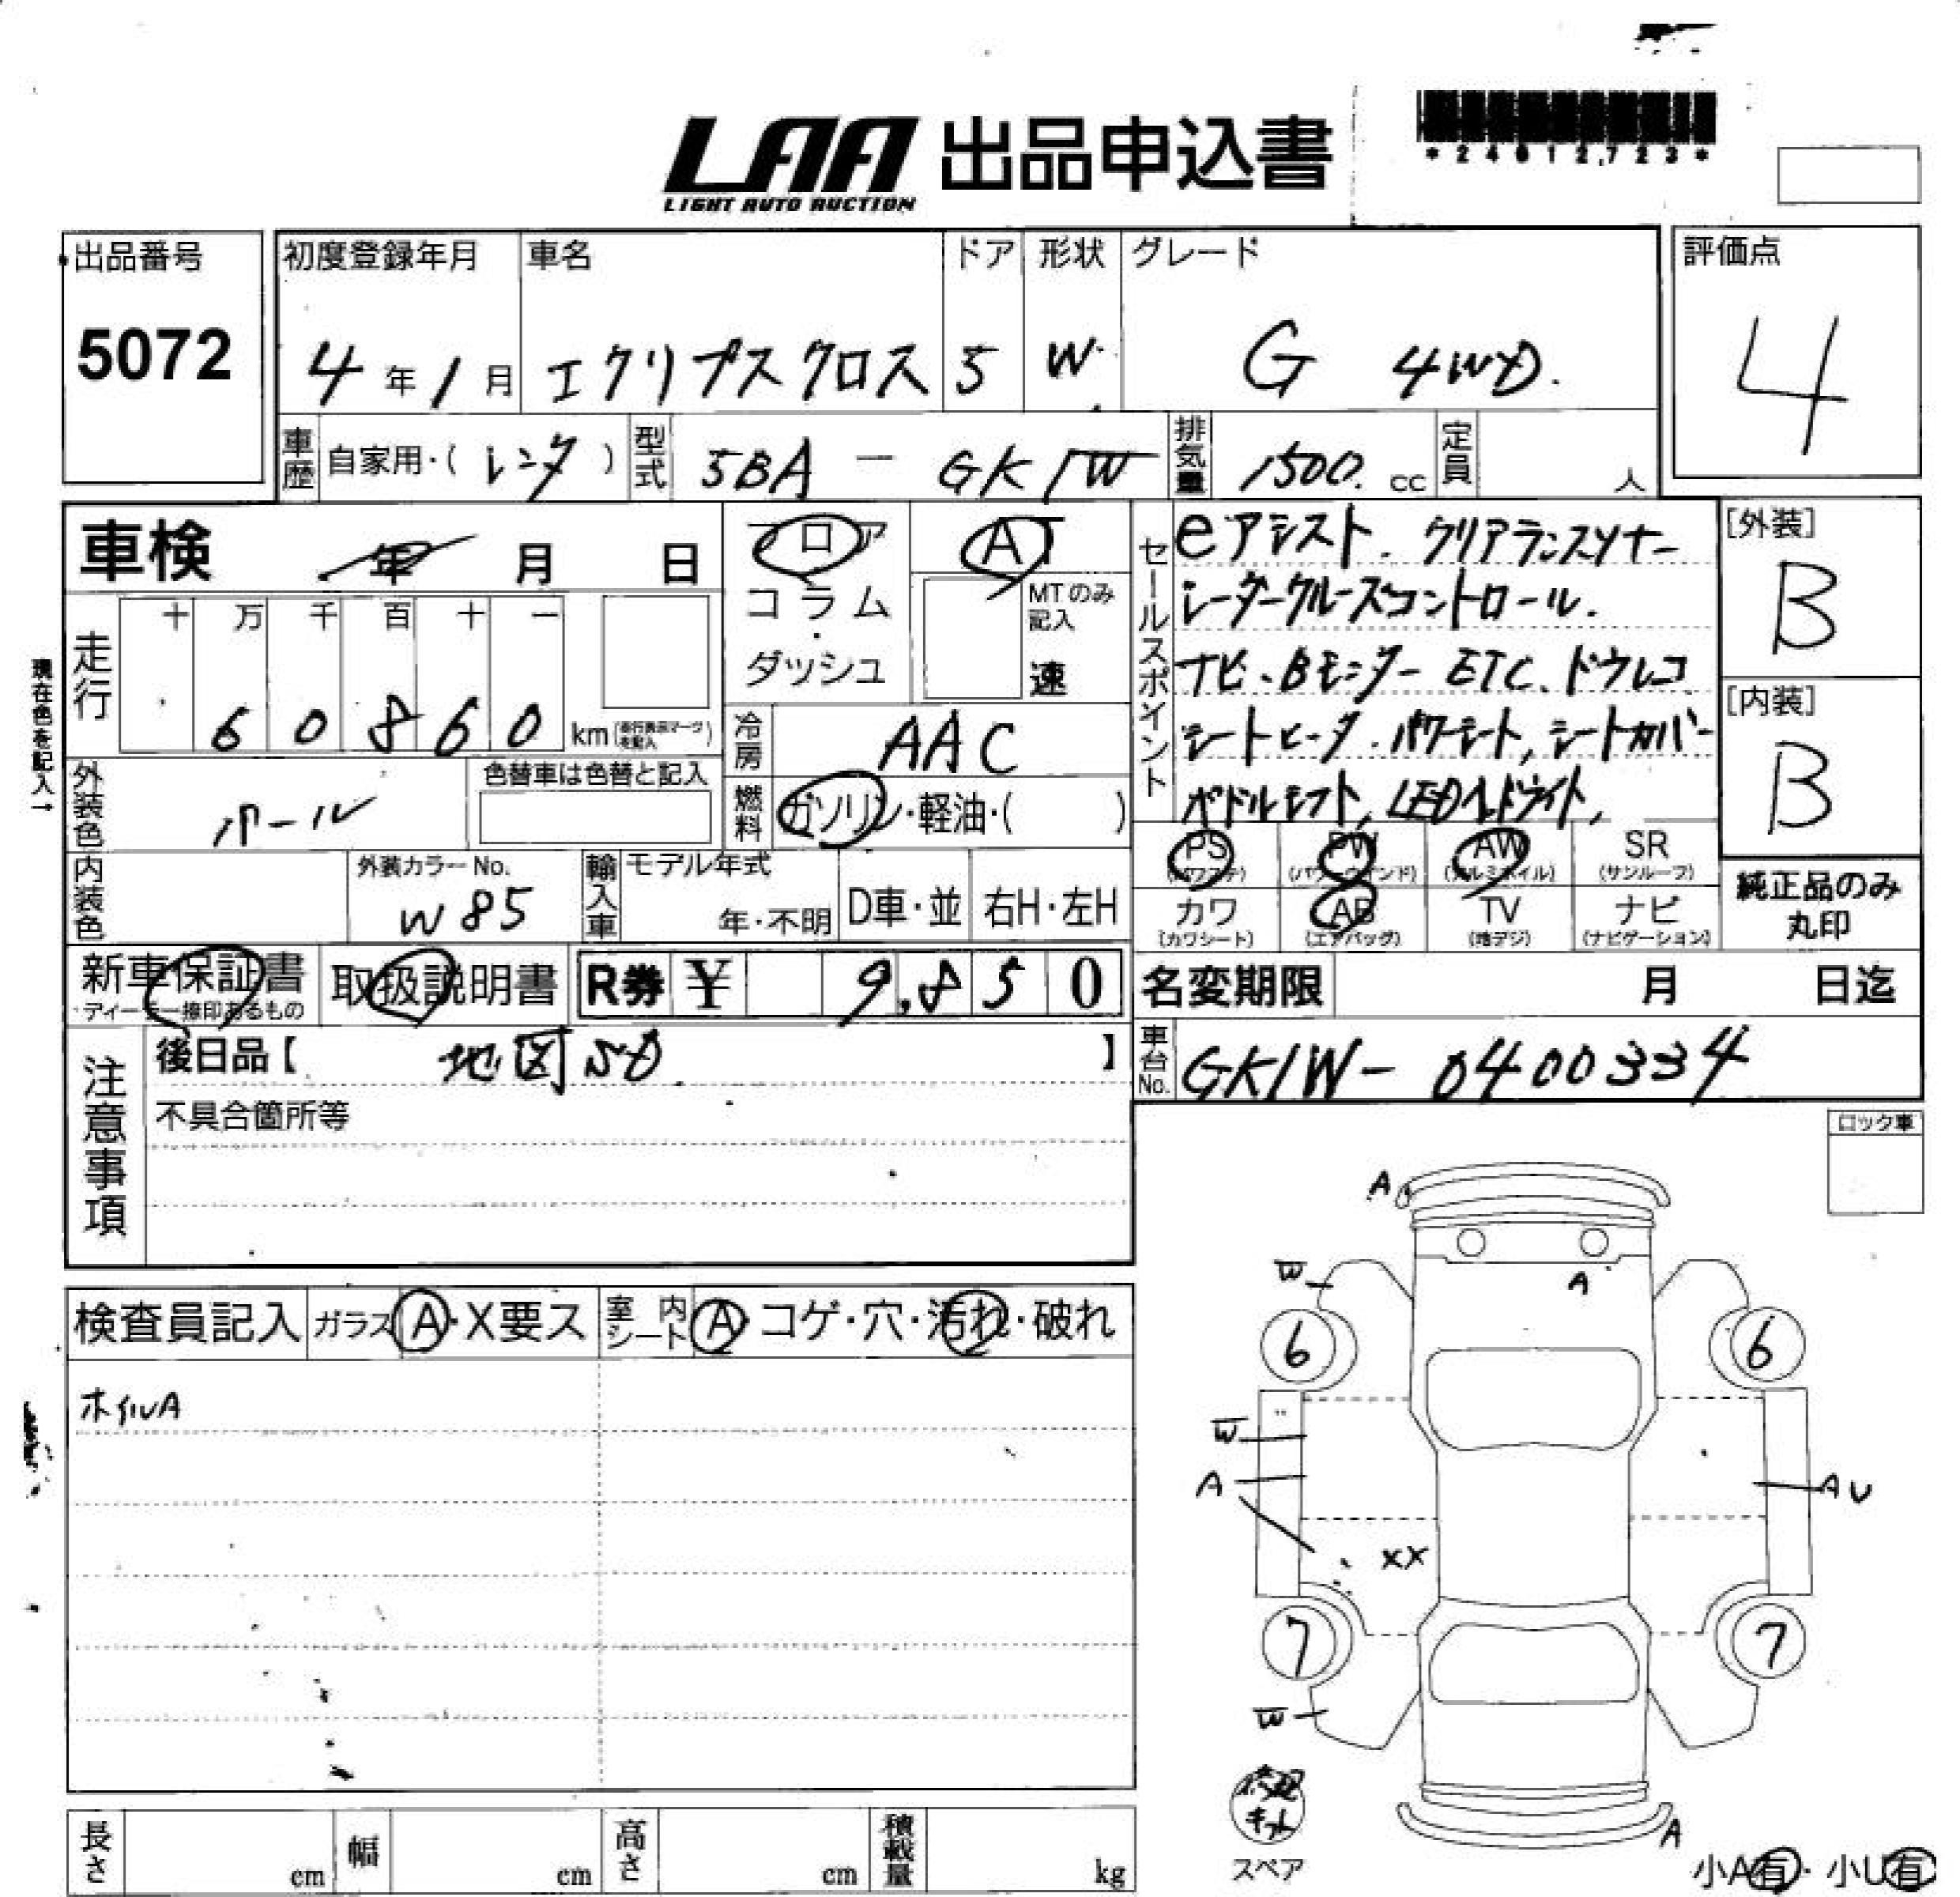 *24012,723*
LAA 出品申込書
LIGHT AUTO AUCTION
出品番号 初度登録年月 車名 ドア 形状 グレード 評価点
5072 4年1月 エクリプスクロス 5 W G 4WD. 4
車歴 自家用・(レンタ) 型式 5BA - GK1W 排気量 1500. cc 定員 人
車検 年 月 日
フロア
コラム
・
ダッシュ
AT
MTのみ
記入
速
セールスポイント
eアシスト. クリアランスソナー
レーダークルーズコントロール.
ナビ、Bモニター ETC、ドラレコ
シートヒータ. パワーシート, シートカバー
パドルシフト, LEDヘッドライト,
[外装]
B
[内装]
B
現在色を記入→
走行 十 万 千 百 十 一
6 0 8 6 0 km (走行表示マークを記入)
冷房 AAC
外装色 パール 色替車は色替と記入
燃料 ガソリン・軽油・( )
PS (パワステ) PW (パワーウインド) AW (アルミホイル) SR (サンルーフ)
カワ (カワシート) AB (エアバッグ) TV (地デジ) ナビ (ナビゲーション)
純正品のみ
丸印
内装色 外装カラーNo. W85 輸入車 モデル年式 年・不明 D車・並 右H・左H
新車保証書 取扱説明書 R券 ¥ 9,850 名変期限 月 日迄
ディーラー捺印あるもの
注意事項
後日品【 地図SD 】
車台No. GK1W-0400334
不具合箇所等
ロック車
検査員記入 ガラス A・X要ス 室内シート A・コゲ・穴・汚れ・破れ
ホイルA
A
W A
6 6
W
A AU
XX
7 7
W
修理
キット
スペア
A
小A有・小U有
長さ cm 幅 cm 高さ cm 積載量 kg